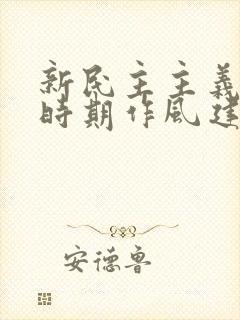 新民主主義
時期作風建
安德鲁